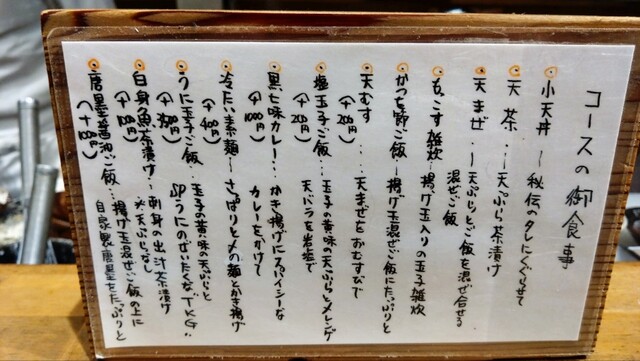 コースの御食事
小天丼 〜 秘伝のタレにくぐらせて
天茶 ‥‥ 天ぷら茶漬け
天まぜ 〜 天ぷらとご飯を混ぜ合せる
混ぜご飯
もっこす雑炊 〜 揚げ玉入りの玉子雑炊
かつを節ご飯 〜 揚げ玉混ぜご飯にたっぷりと
天むす ‥‥ 天まぜをおむすびで
(+200円)
塩玉子ご飯 ‥‥ 玉子の黄味の天ぷらとメレンゲ
(+200円) 天バラを岩塩で
黒七味カレー ‥‥ かき揚げにスパイシーな
(+1000円) カレーをかけて
冷たい素麺 〜 さっぱり〆の麺とかき揚げ
(+400円)
うに玉子ご飯 ‥‥ 玉子の黄味の天ぷらと
円) SPうにのぜいたくなTKG‥
白身魚茶漬け ‥‥ 刺身の出汁茶漬け
円) ※天ぷらなし
唐墨醤油ご飯 ‥‥ 揚げ玉混ぜご飯の上に
円) 自家製唐墨をたっぷりと